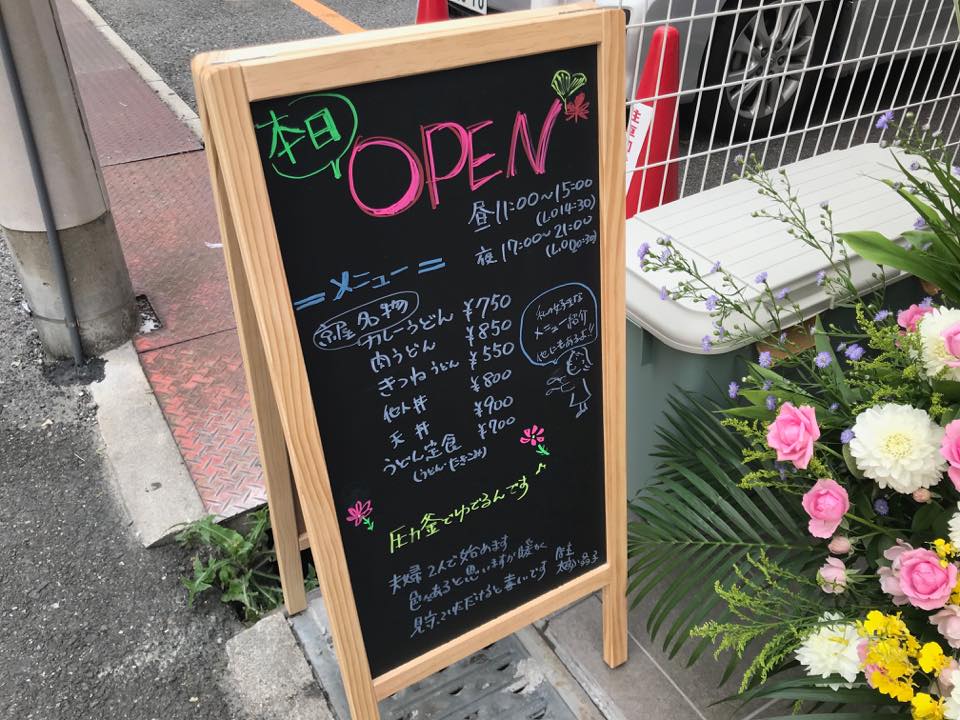 本日
OPEN
昼11:00～15:00
(L.O14:30)
夜17:00～21:00
(L.O20:30)
=メニュー=
京屋名物
カレーうどん ¥750
肉うどん ¥850
きつねうどん ¥550
他人丼 ¥800
天丼 ¥900
うどん定食 ¥700
(うどん・たきこみ)
私の好きな
メニュー紹介
他にもあるよ!!
圧力釜でゆでるんです♪
夫婦2人で始めます
色々あると思いますが暖かく
見守っていただけると幸いです
店主